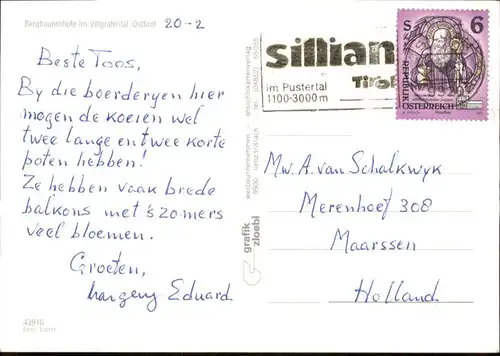 Bergbauernhöfe im Villgratental, Osttirol
20-2
Beste Toos,
By die boerderyen hier
mogen de koeien wel
twee lange en twee korte
poten hebben!
Ze hebben vaak brede
balkons met 's zomers
veel bloemen.
Groeten,
Eduard
43916
ansichtskartenverlag
werbeunternehmen
grafik
zloebl
sillian
im Pustertal
Tirol
1100-3000m
6
REPUBLIK
ÖSTERREICH
Mw. A. van Schalkwyk
Merenhoef 308
Maarssen
Holland